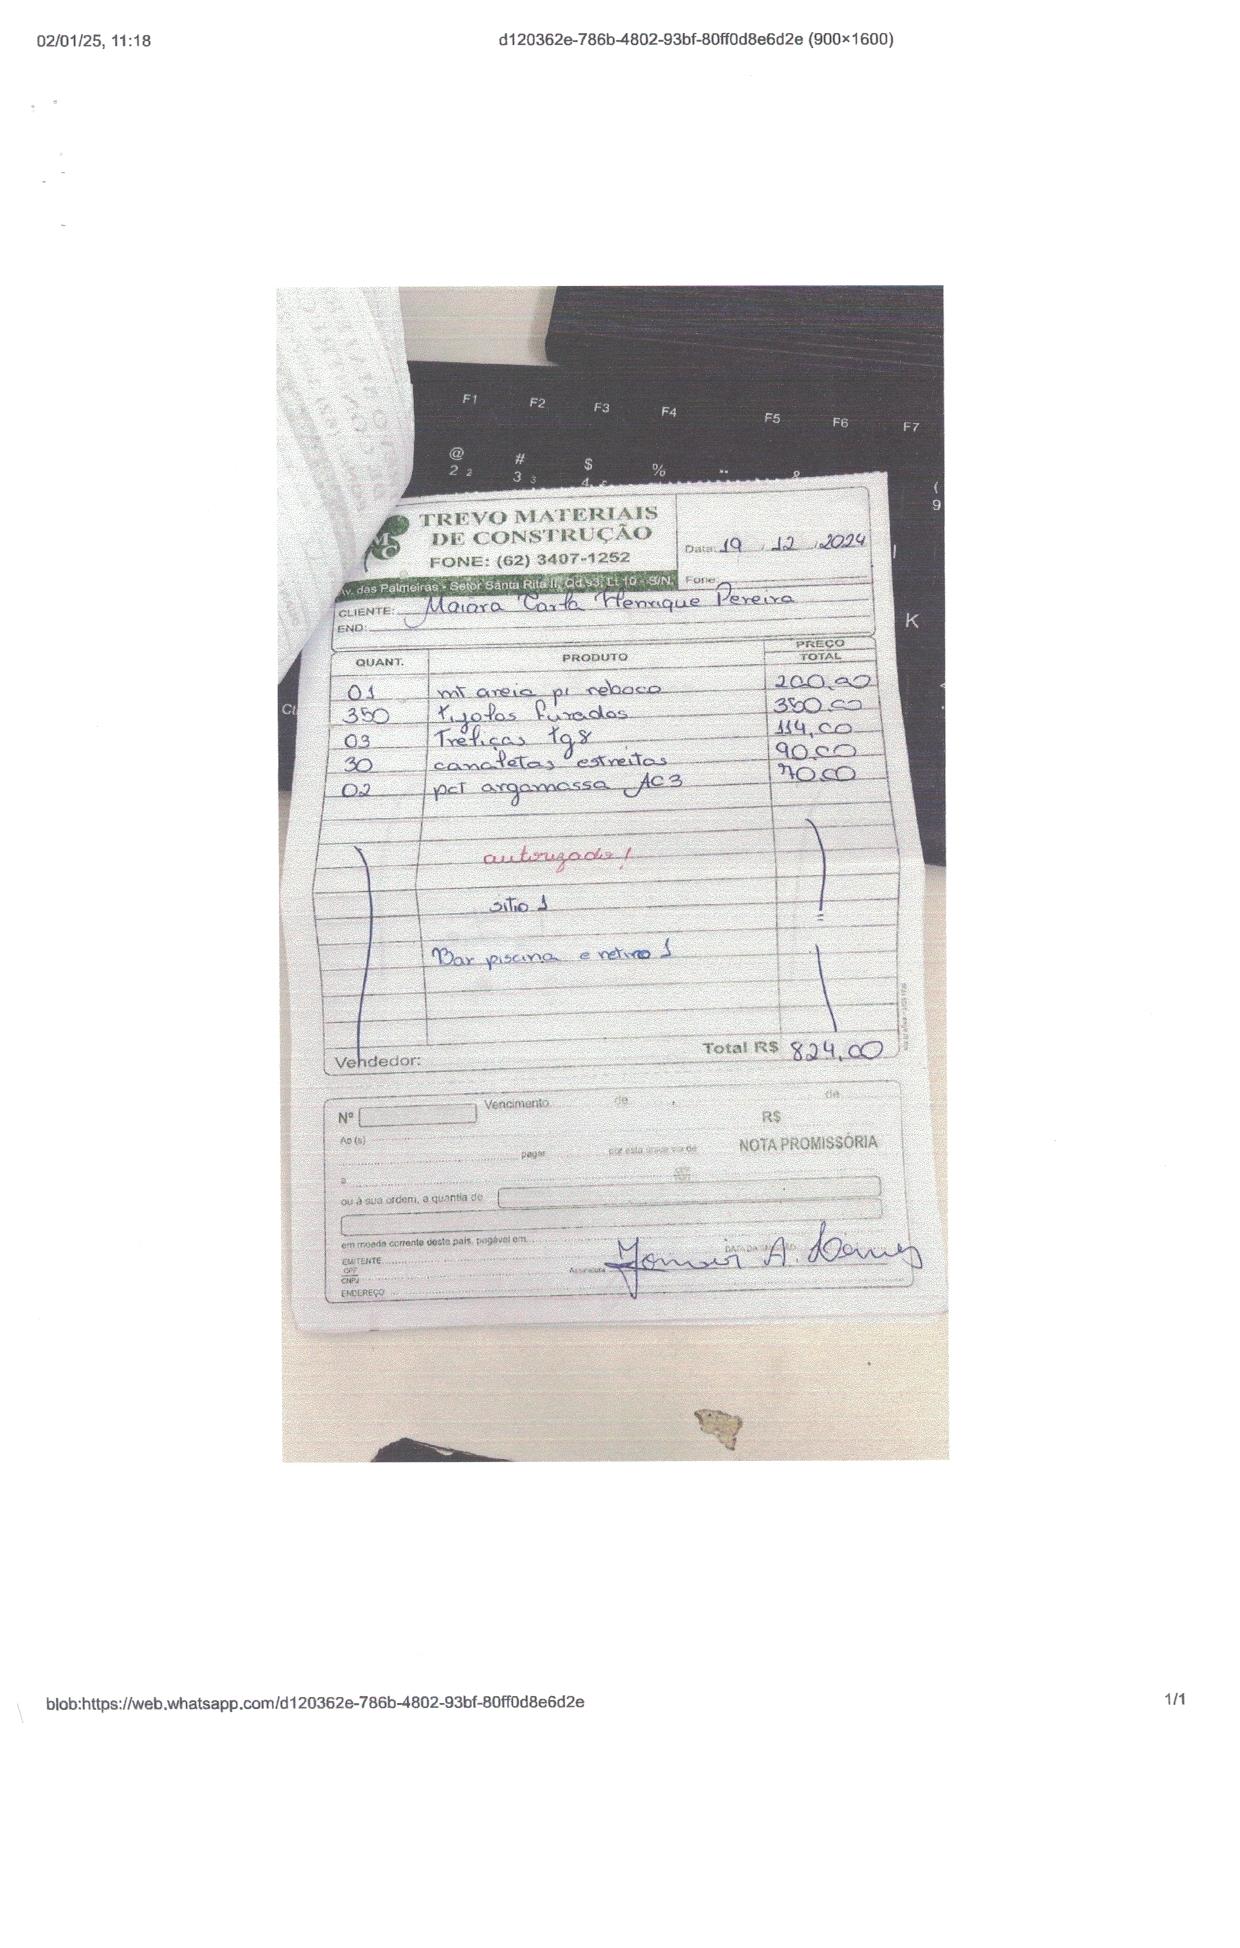 02/01/25, 11:18
d120362e-786b-4802-93bf-80ff0d8e6d2e (900×1600)
F1 F2 F3 F4 F5 F6 F7
@ # $ %
2 2 3 3
( 9
K
TREVO MATERIAIS
DE CONSTRUÇÃO
FONE: (62) 3407-1252
Av. das Palmeiras - Setor Santa Rita II, Qd 93, Lt 10 - S/N.
Data: 19 / 12 / 2024
Fone:
CLIENTE: Maiara Carla Henrique Pereira
END:
QUANT. PRODUTO PREÇO TOTAL
01 mt areia p/ reboco 200,00
350 tijolos furados 350,00
03 Treliças tg8 114,00
30 canaletas estreitas 90,00
02 pct argamassa AC3 70,00
autorizado!
sitio 1
Bar piscina e retiro 1
Vendedor: Total R$ 824,00
Nº Vencimento de de
R$
Ao(s)
NOTA PROMISSÓRIA
pagar por esta única via de
a
ou à sua ordem, a quantia de
em moeda corrente deste país, pagável em
EMITENTE
CPF
CNPJ
Assinatura
ENDEREÇO
blob:https://web.whatsapp.com/d120362e-786b-4802-93bf-80ff0d8e6d2e
1/1